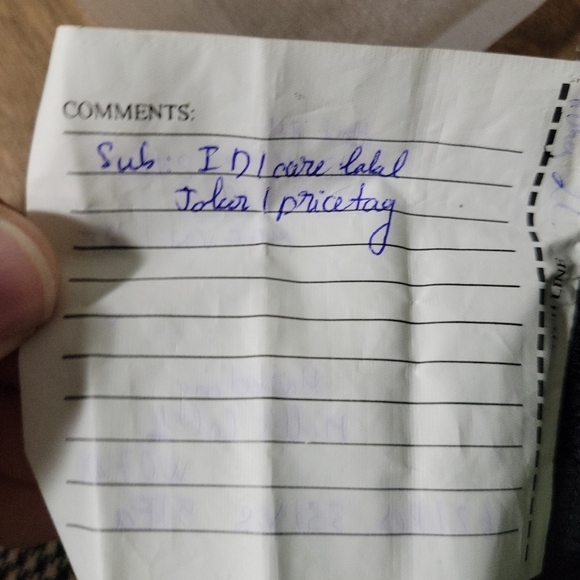 COMMENTS:
Sub: ID/care label
Joker/pricetag
LINE